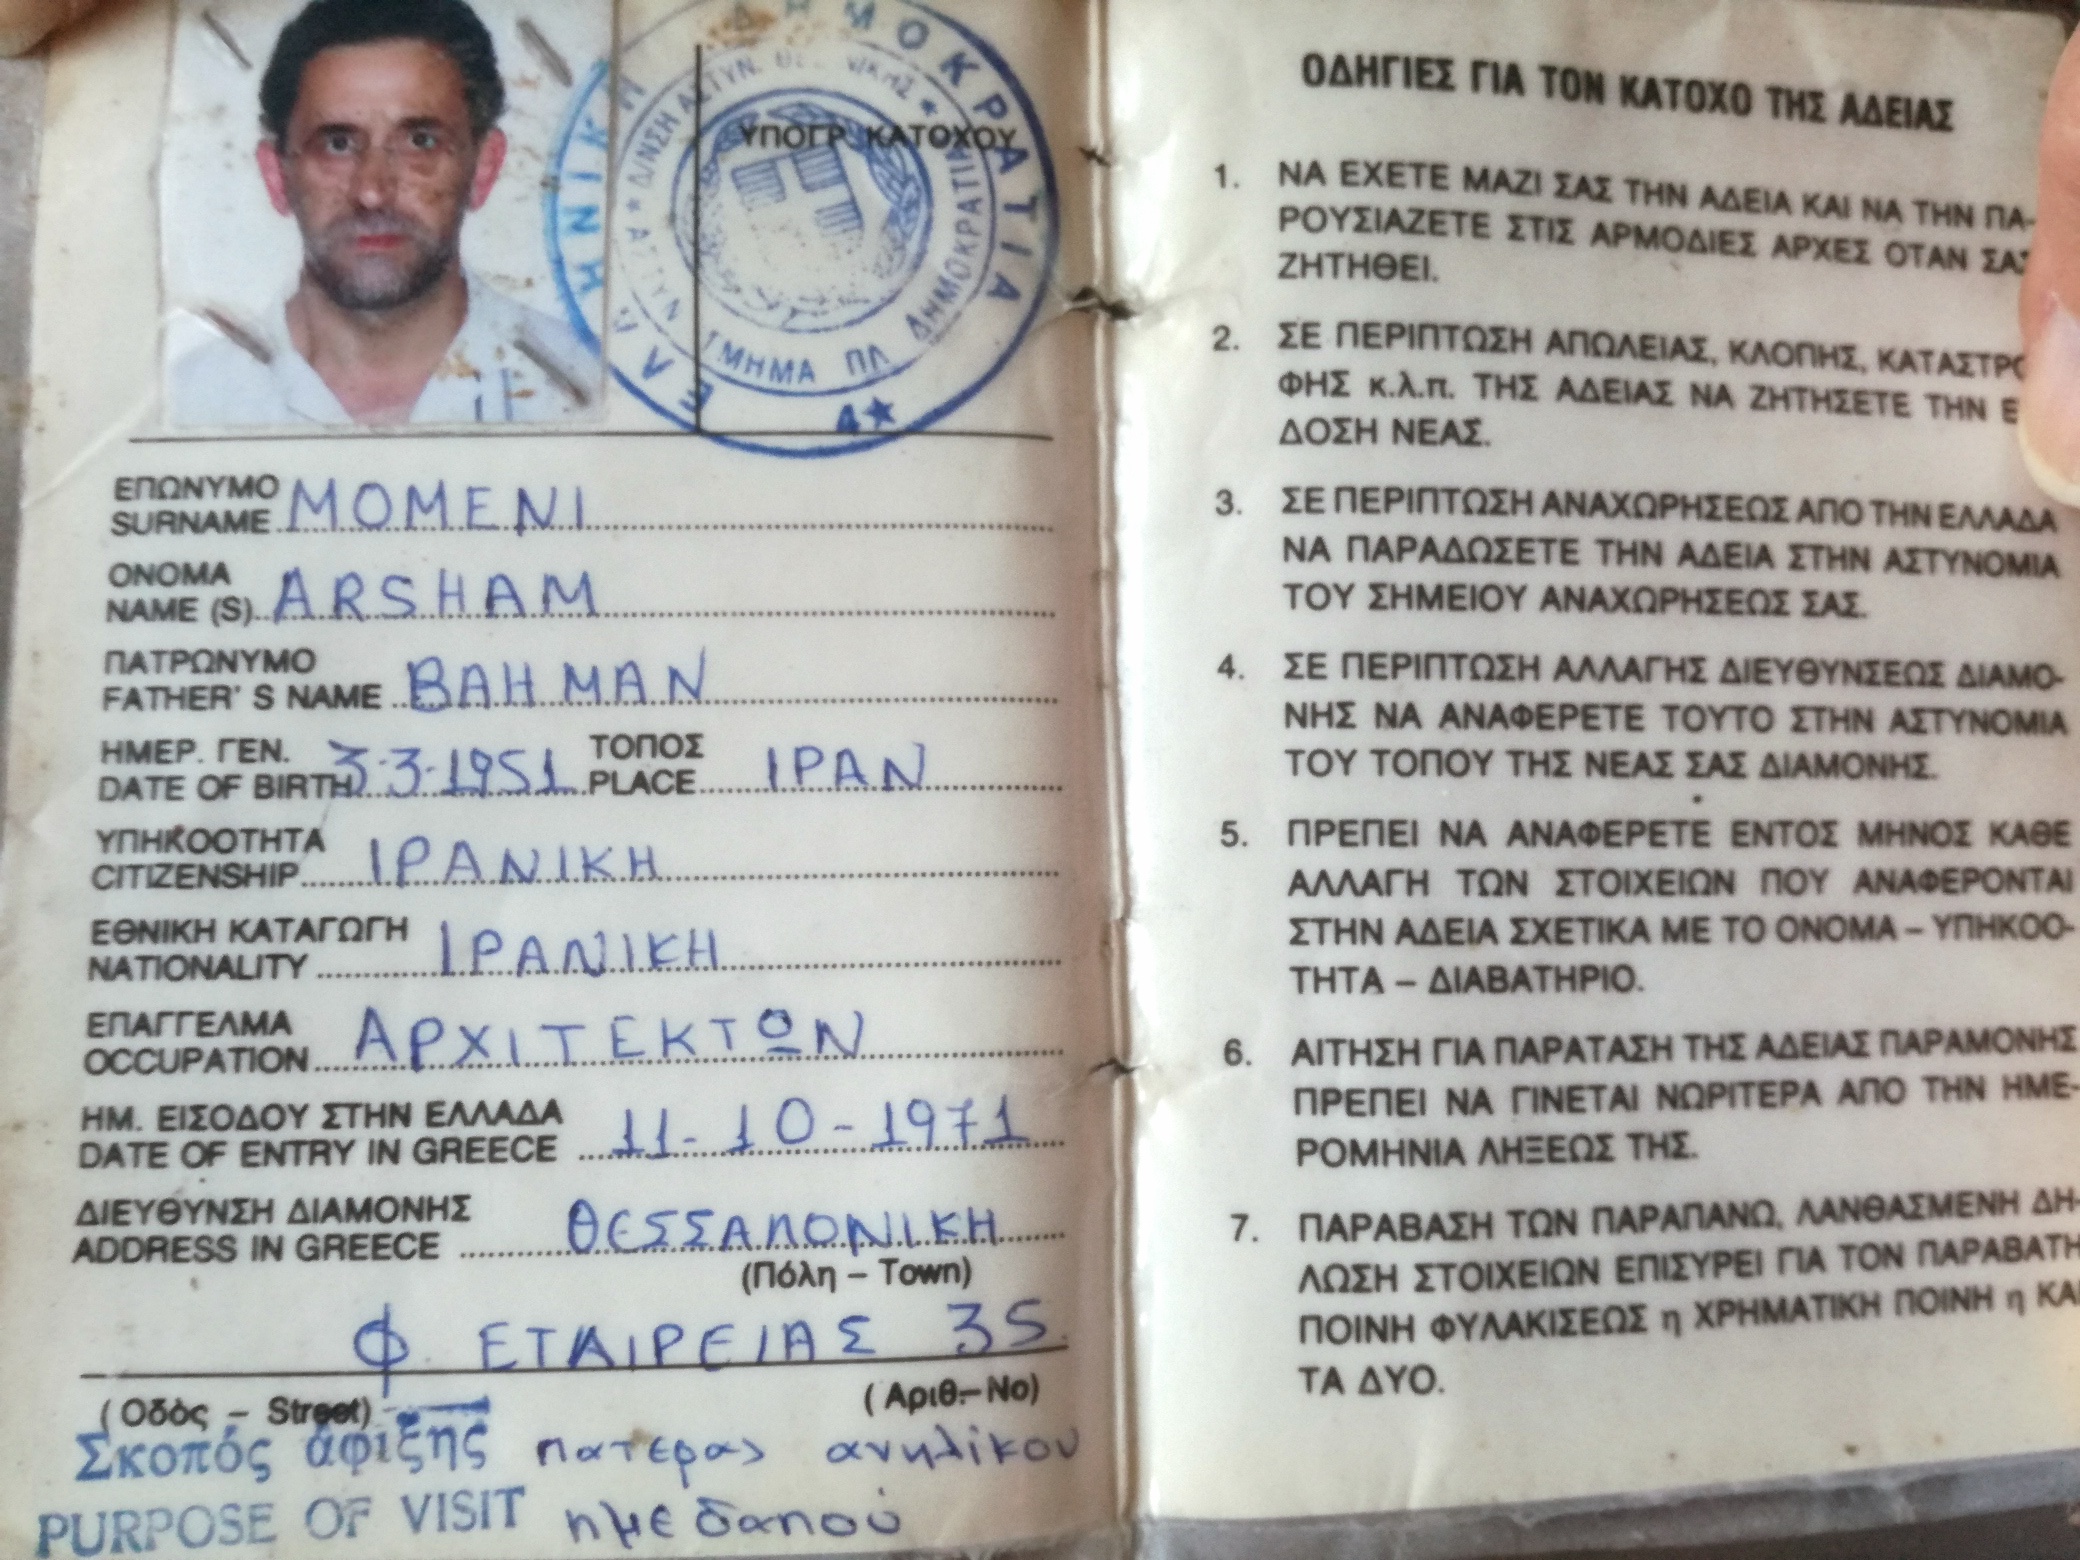 ΕΛΛΗΝΙΚΗ ΔΗΜΟΚΡΑΤΙΑ
ΤΜΗΜΑ ΠΛ
ΔΗΜΟΚΡΑΤΙΑ
4★
ΥΠΟΓΡ. ΚΑΤΟΧΟΥ
ΕΠΩΝΥΜΟ
SURNAME MOMENI
ΟΝΟΜΑ
NAME (S) ARSHAM
ΠΑΤΡΩΝΥΜΟ
FATHER' S NAME BAHMAN
ΗΜΕΡ. ΓΕΝ. ΤΟΠΟΣ
DATE OF BIRTH 3-3-1951 PLACE ΙΡΑΝ
ΥΠΗΚΟΟΤΗΤΑ
CITIZENSHIP ΙΡΑΝΙΚΗ
ΕΘΝΙΚΗ ΚΑΤΑΓΩΓΗ
NATIONALITY ΙΡΑΝΙΚΗ
ΕΠΑΓΓΕΛΜΑ
OCCUPATION ΑΡΧΙΤΕΚΤΩΝ
ΗΜ. ΕΙΣΟΔΟΥ ΣΤΗΝ ΕΛΛΑΔΑ
DATE OF ENTRY IN GREECE 11-10-1971
ΔΙΕΥΘΥΝΣΗ ΔΙΑΜΟΝΗΣ
ADDRESS IN GREECE ΘΕΣΣΑΛΟΝΙΚΗ
(Πόλη – Town)
Φ. ΕΤΑΙΡΕΙΑΣ 35
(Οδὸς – Street) (Αριθ.– No)
Σκοπός ἀφίξης πατερας ανηλίκου
PURPOSE OF VISIT ημεδαπού
ΟΔΗΓΙΕΣ ΓΙΑ ΤΟΝ ΚΑΤΟΧΟ ΤΗΣ ΑΔΕΙΑΣ
1. ΝΑ ΕΧΕΤΕ ΜΑΖΙ ΣΑΣ ΤΗΝ ΑΔΕΙΑ ΚΑΙ ΝΑ ΤΗΝ ΠΑ-
ΡΟΥΣΙΑΖΕΤΕ ΣΤΙΣ ΑΡΜΟΔΙΕΣ ΑΡΧΕΣ ΟΤΑΝ ΣΑΣ
ΖΗΤΗΘΕΙ.
2. ΣΕ ΠΕΡΙΠΤΩΣΗ ΑΠΩΛΕΙΑΣ, ΚΛΟΠΗΣ, ΚΑΤΑΣΤΡΟ
ΦΗΣ κ.λ.π. ΤΗΣ ΑΔΕΙΑΣ ΝΑ ΖΗΤΗΣΕΤΕ ΤΗΝ Ε
ΔΟΣΗ ΝΕΑΣ.
3. ΣΕ ΠΕΡΙΠΤΩΣΗ ΑΝΑΧΩΡΗΣΕΩΣ ΑΠΟ ΤΗΝ ΕΛΛΑΔΑ
ΝΑ ΠΑΡΑΔΩΣΕΤΕ ΤΗΝ ΑΔΕΙΑ ΣΤΗΝ ΑΣΤΥΝΟΜΙΑ
ΤΟΥ ΣΗΜΕΙΟΥ ΑΝΑΧΩΡΗΣΕΩΣ ΣΑΣ.
4. ΣΕ ΠΕΡΙΠΤΩΣΗ ΑΛΛΑΓΗΣ ΔΙΕΥΘΥΝΣΕΩΣ ΔΙΑΜΟ-
ΝΗΣ ΝΑ ΑΝΑΦΕΡΕΤΕ ΤΟΥΤΟ ΣΤΗΝ ΑΣΤΥΝΟΜΙΑ
ΤΟΥ ΤΟΠΟΥ ΤΗΣ ΝΕΑΣ ΣΑΣ ΔΙΑΜΟΝΗΣ.
5. ΠΡΕΠΕΙ ΝΑ ΑΝΑΦΕΡΕΤΕ ΕΝΤΟΣ ΜΗΝΟΣ ΚΑΘΕ
ΑΛΛΑΓΗ ΤΩΝ ΣΤΟΙΧΕΙΩΝ ΠΟΥ ΑΝΑΦΕΡΟΝΤΑΙ
ΣΤΗΝ ΑΔΕΙΑ ΣΧΕΤΙΚΑ ΜΕ ΤΟ ΟΝΟΜΑ – ΥΠΗΚΟΟ-
ΤΗΤΑ – ΔΙΑΒΑΤΗΡΙΟ.
6. ΑΙΤΗΣΗ ΓΙΑ ΠΑΡΑΤΑΣΗ ΤΗΣ ΑΔΕΙΑΣ ΠΑΡΑΜΟΝΗΣ
ΠΡΕΠΕΙ ΝΑ ΓΙΝΕΤΑΙ ΝΩΡΙΤΕΡΑ ΑΠΟ ΤΗΝ ΗΜΕ-
ΡΟΜΗΝΙΑ ΛΗΞΕΩΣ ΤΗΣ.
7. ΠΑΡΑΒΑΣΗ ΤΩΝ ΠΑΡΑΠΑΝΩ, ΛΑΝΘΑΣΜΕΝΗ ΔΗ-
ΛΩΣΗ ΣΤΟΙΧΕΙΩΝ ΕΠΙΣΥΡΕΙ ΓΙΑ ΤΟΝ ΠΑΡΑΒΑΤΗ
ΠΟΙΝΗ ΦΥΛΑΚΙΣΕΩΣ η ΧΡΗΜΑΤΙΚΗ ΠΟΙΝΗ η ΚΑΙ
ΤΑ ΔΥΟ.